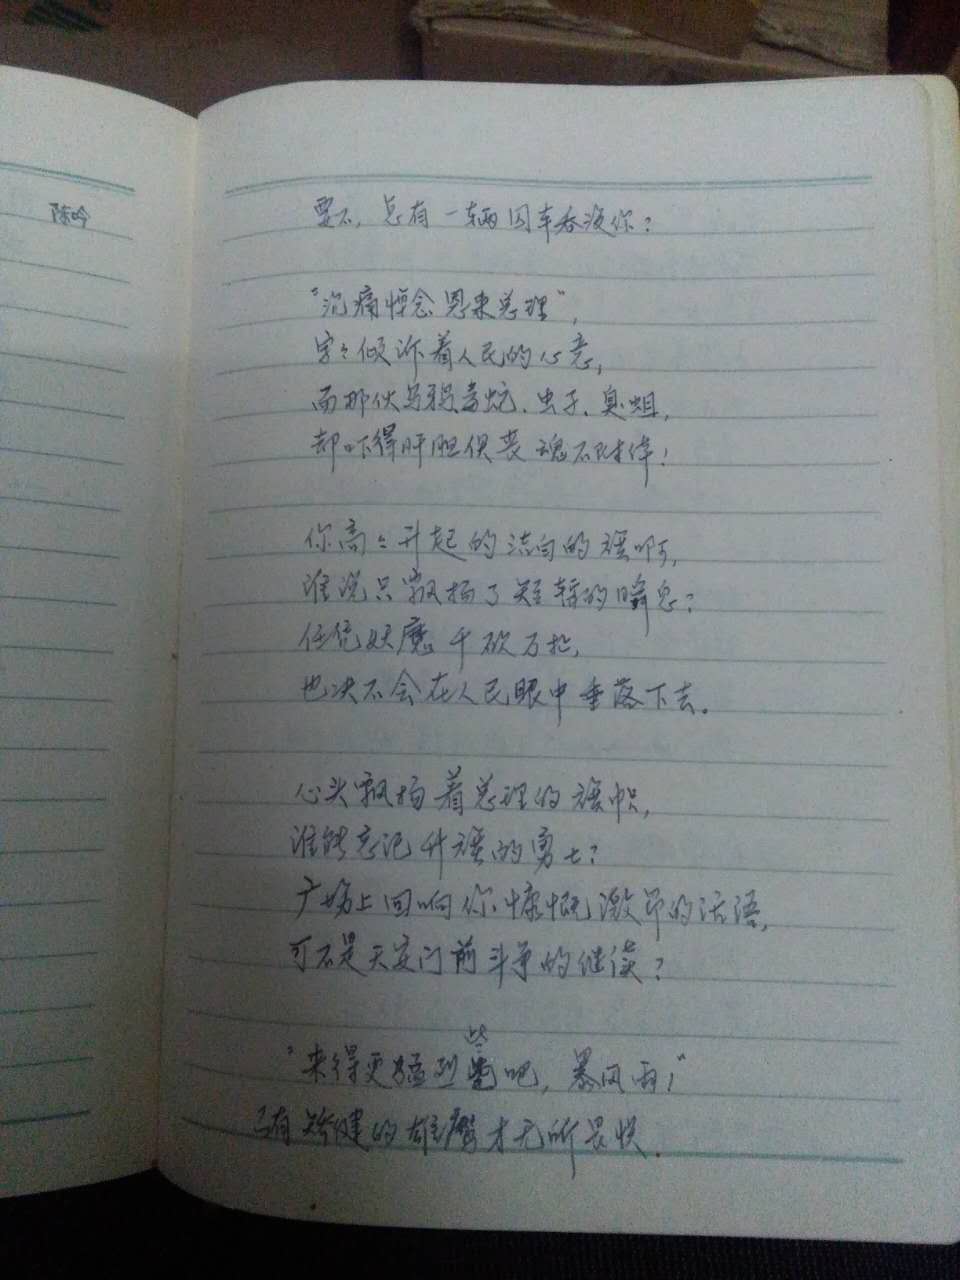 陈吟
要不,总有一辆囚车吞没你?
"沉痛悼念恩来总理",
字々倾诉着人民的心意,
而那伙乌鸦、毒蛇、虫子、臭蛆,
却吓得肝胆俱丧魂不附体!
你高々升起的洁白的旗啊,
谁说只飘扬了短暂的瞬息?
任凭妖魔千砍万扯,
也决不会在人民眼中垂落下去。
心头飘扬着总理的旗帜,
谁能忘记升旗的勇士?
广场上回响你慷慨激昂的话语,
可不是天安门前斗争的继续?
"来得更猛烈些吧,暴风雨!"
只有矫健的雄鹰才无所畏惧.